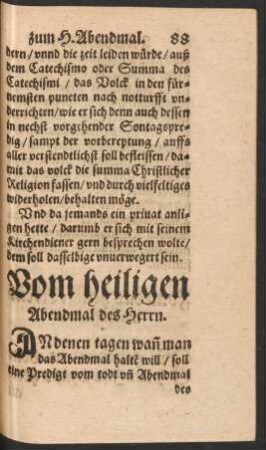 zum H. Abendmal. 88
dern/vnnd die zeit leiden würde/auß
dem Catechismo oder Summa des
Catechismi / das Volck in den für-
nemsten puncten nach notturfft vn-
derrichten/wie er sich denn auch dessen
in nechst vorgehender Sontagspre-
dig/sampt der vorbereytung / auffs
aller verstendtlichst soll befleissen/da-
mit das volck die summa Christlicher
Religion fassen/vnd durch vielfeltiges
widerholen/behalten möge.
Vnd da jemands ein priuat anli-
gen hette / darumb er sich mit seinem
Kirchendiener gern besprechen wolte/
dem soll dasselbige vnuerwegert sein.
Vom heiligen
Abendmal des Herrn.
AN denen tagen wañ man
das Abendmal haltē will / soll
eine Predigt vom todt vñ Abendmal
des